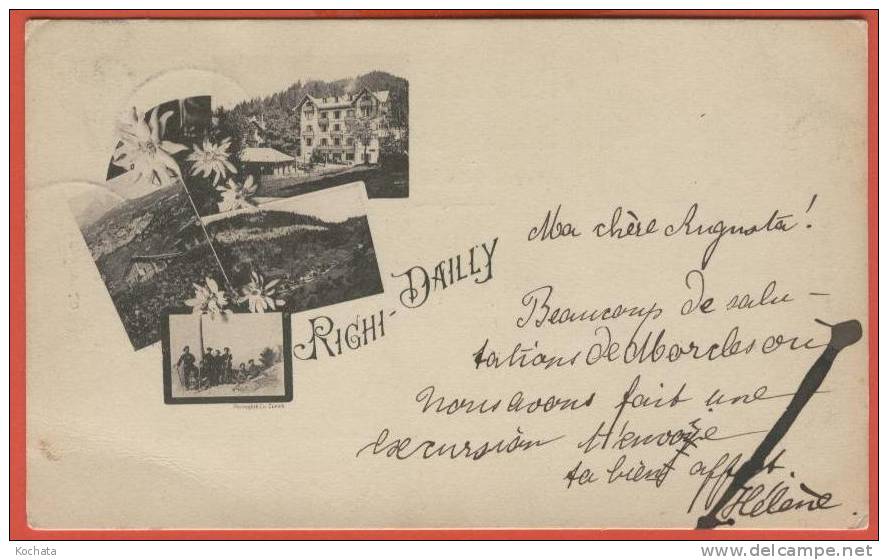 RIGHI-DAILLY
Ma chère Augusta!
Beaucoup de salu-
tations de Morcles où
nous avons fait une
excursion t'envoie
ta bien affect.
Hélène.
Kochata
www.delcampe.net